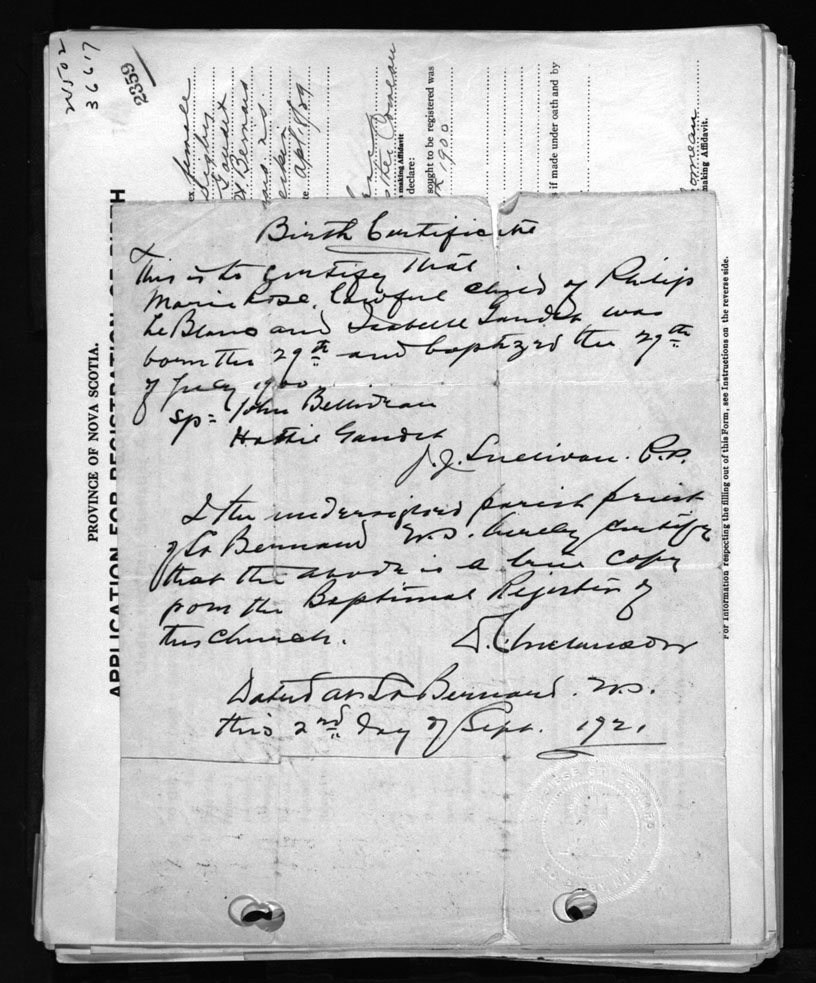 Birth Certificate
This is to certify that
Marie Rose, lawful child of Philip
Le Blanc and Isabelle Gaudet was
born the 29th and baptized the 29th
of July 1900
Sp = John Belliveau
Hattie Gaudet
J. J. Sullivan. P.P.
I the undersigned parish priest
of St Bernard N.S. hereby certify
that the above is a true copy
from the Baptismal Register of
this Church.
Dated at St Bernard. N.S.
this 2nd day of Sept. 1921
PROVINCE OF NOVA SCOTIA.
APPLICATION FOR REGISTRATION OF BIRTH
2359
3667
female
Digby
Gaudet
St Bernard
Apl. 1859
making Affidavit
declare:
sought to be registered was
1900
if made under oath and by
Comeau
making Affidavit.
For information respecting the filling out of this Form, see Instructions on the reverse side.